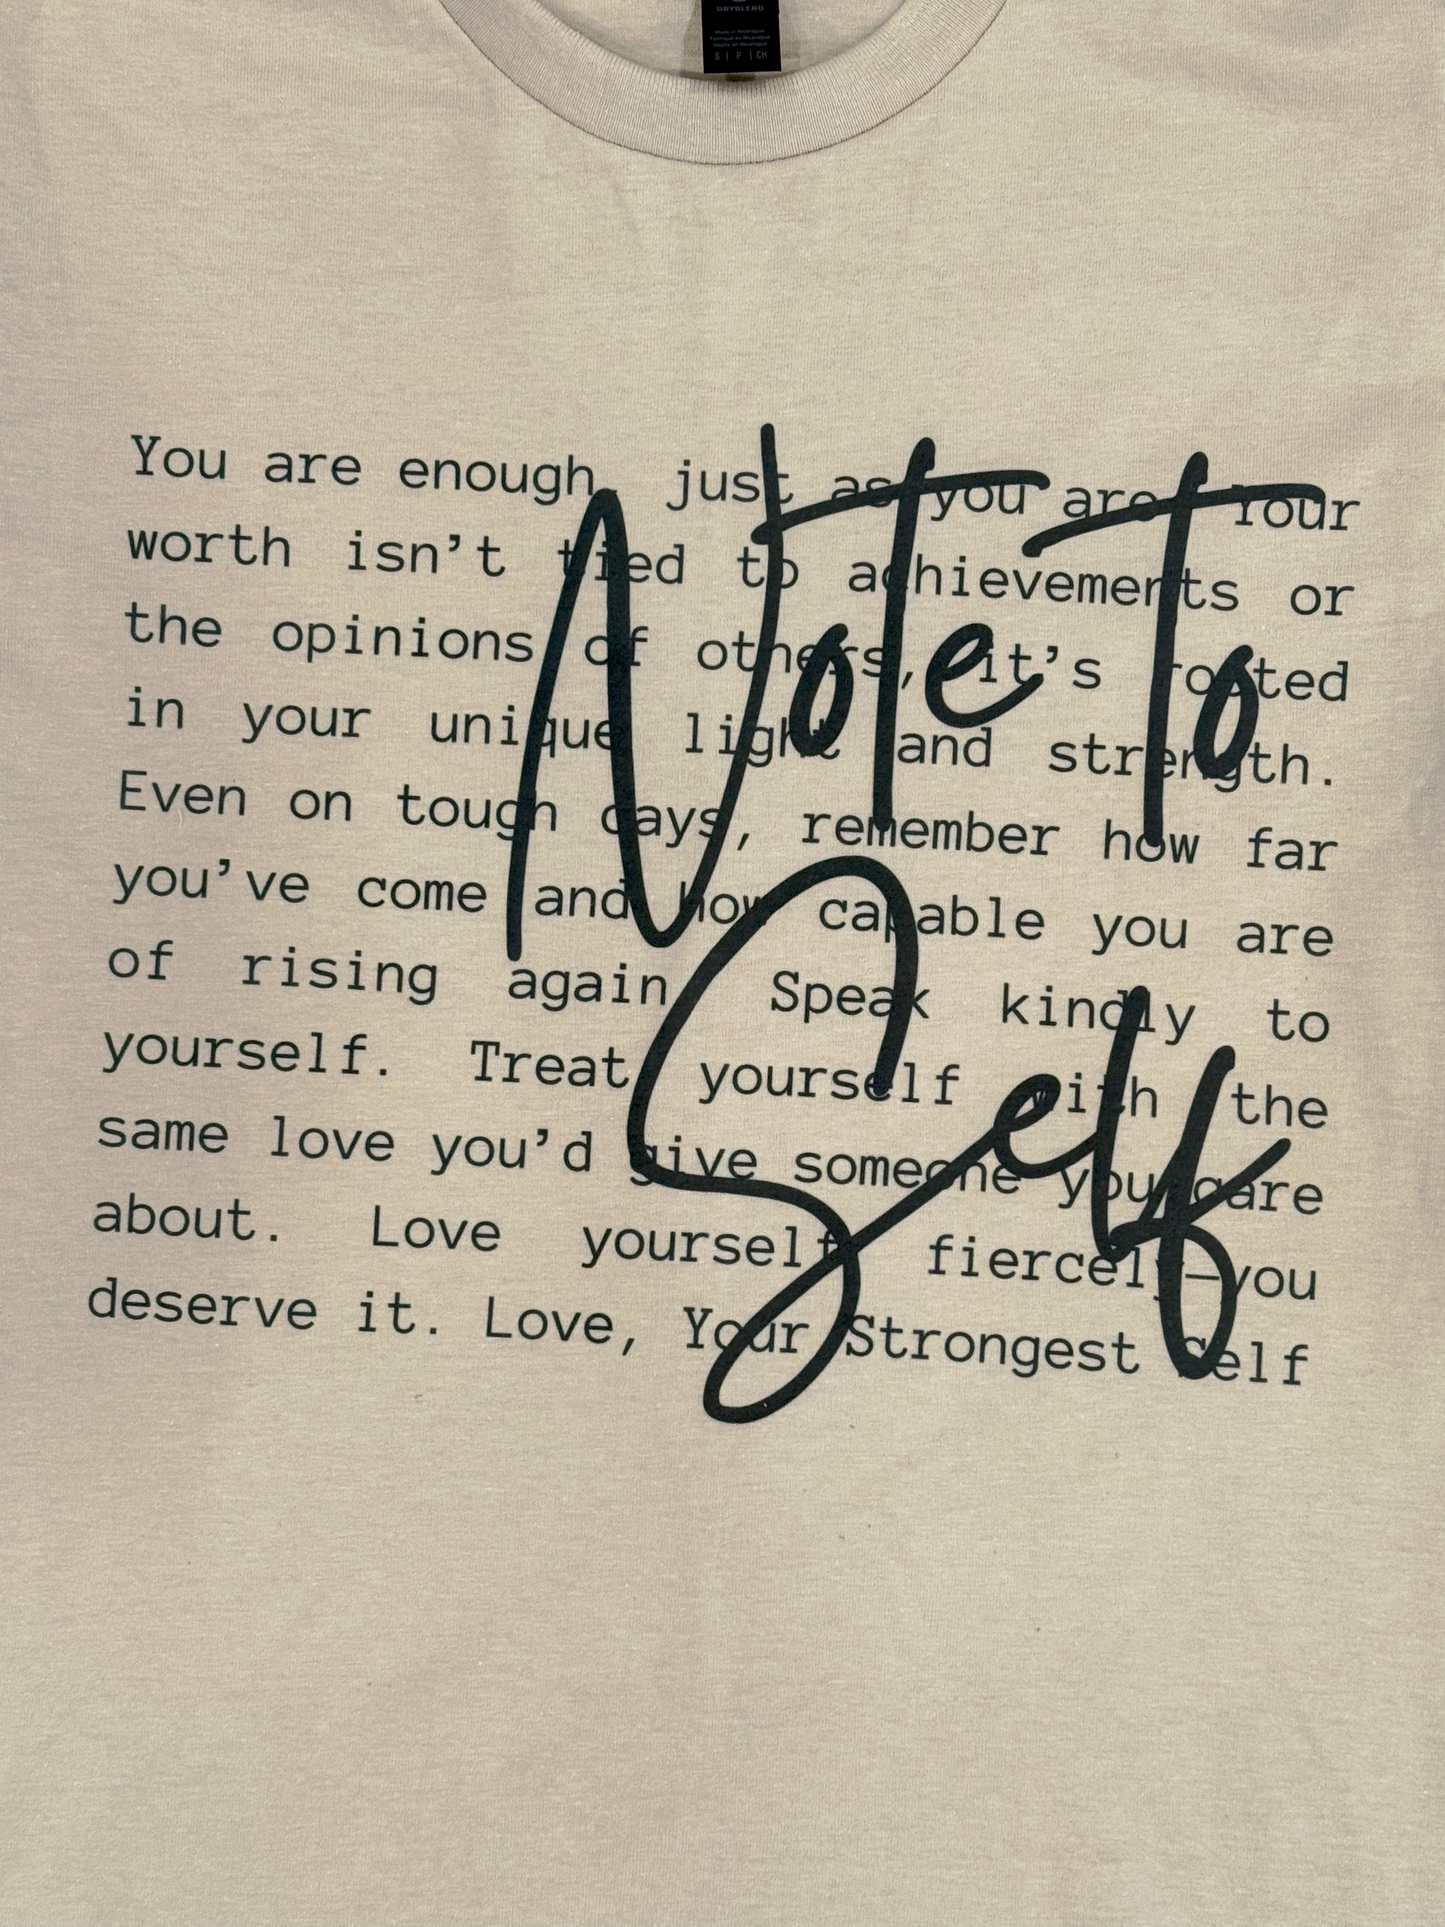 DRYBLEND
Made in Nicaragua
Fabriqué au Nicaragua
Hecho en Nicaragua
S | P | CH
You are enough, just as you are. Your
worth isn’t tied to achievements or
the opinions of others, it’s rooted
in your unique light and strength.
Even on tough days, remember how far
you’ve come and how capable you are
of rising again. Speak kindly to
yourself. Treat yourself with the
same love you’d give someone you care
about. Love yourself fiercely—you
deserve it. Love, Your Strongest Self
Note To
Self